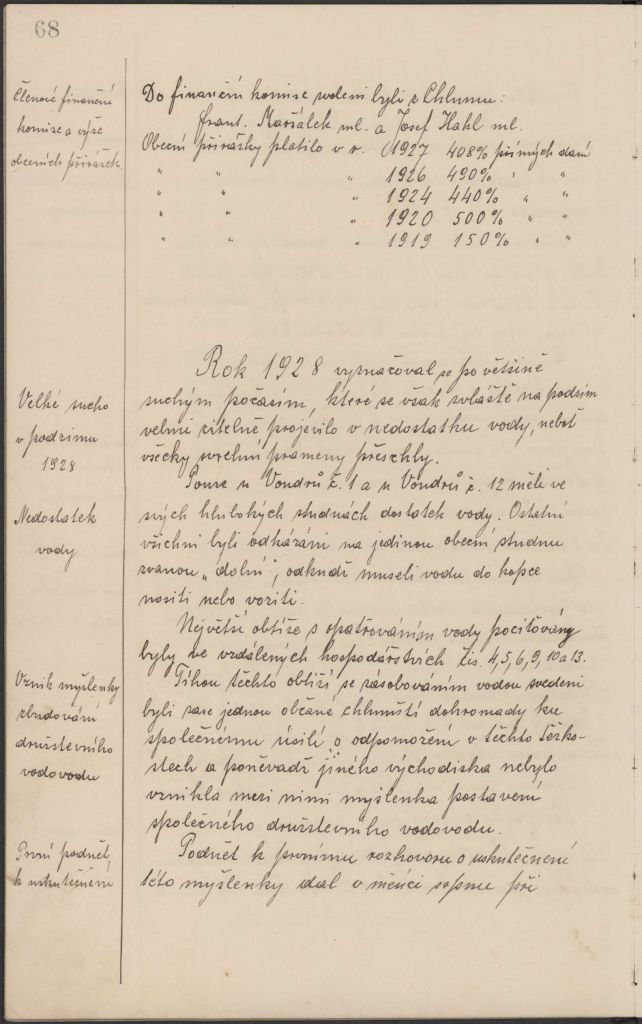 68
Členové finanční
komise a výše
obecních přirážek
Do finanční komise voleni byli z Chlumu:
frant. Maršálek ml. a Josef Hahl ml.
Obecní přirážky platilo v r. 1927 408% přímých daní
" " " 1926 490% " "
" " " 1924 440% " "
" " " 1920 500% " "
" " " 1919 150% " "
Velké sucho
v podzimu
1928
Rok 1928 vyznačoval se po většině
suchým počasím, které se však zvláště na podzim
velmi citelně projevilo v nedostatku vody, neboť
všecky svrchní prameny přeschly.
Nedostatek
vody
Pouze u Vondrů č. 1 a u Vondrů č. 12 měli ve
svých hlubokých studnách dostatek vody. Ostatní
všichni byli odkázáni na jedinou obecní studnu
zvanou „dolní", odkudž museli vodu do kopce
nositi nebo voziti.
Největší obtíže s opatřováním vody pociťovány
byly ve vzdálených hospodářstvích čis. 4, 5, 6, 9, 10 a 13.
Vznik myšlenky
zbudování
družstevního
vodovodu
Tíhou těchto obtíží se zásobováním vodou svedeni
byli zase jednou občané chlumští dohromady ku
společnému úsilí o odpomožení v těchto těžko-
stech a poněvadž jiného východiska nebylo
vznikla mezi nimi myšlenka postavení
společného družstevního vodovodu.
První podnět
k uskutečnění
Podnět k prvnímu rozhovoru o uskutečnění
této myšlenky dal v měsíci srpnu při